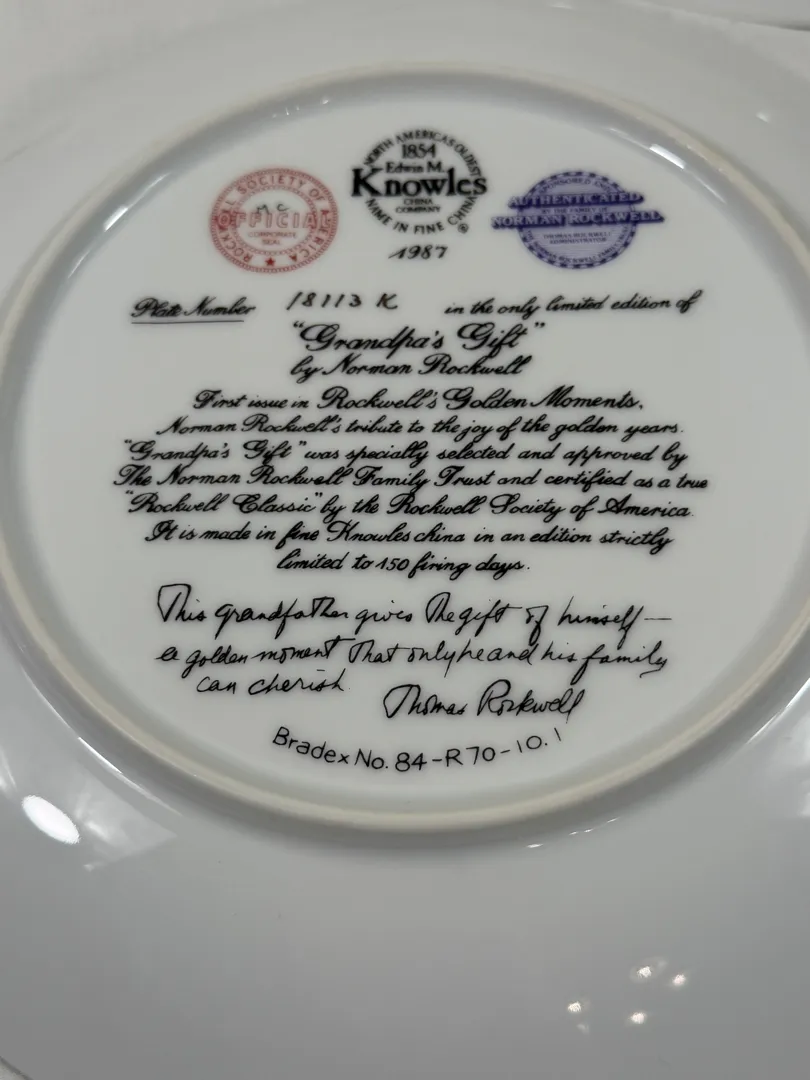 ROCKWELL SOCIETY OF AMERICA
OFFICIAL
CORPORATE
SEAL
MC
NORTH AMERICA'S OLDEST
1854
Edwin M.
Knowles
CHINA
COMPANY
NAME IN FINE CHINA
®
1987
AUTHENTICATED
BY THE FAMILY OF
NORMAN ROCKWELL
THOMAS ROCKWELL
ADMINISTRATOR
Plate Number 18113 K in the only limited edition of
"Grandpa's Gift"
by Norman Rockwell
First issue in Rockwell's Golden Moments,
Norman Rockwell's tribute to the joy of the golden years.
"Grandpa's Gift" was specially selected and approved by
The Norman Rockwell Family Trust and certified as a true
"Rockwell Classic" by the Rockwell Society of America.
It is made in fine Knowles china in an edition strictly
limited to 150 firing days.
This grandfather gives the gift of himself—
a golden moment that only he and his family
can cherish.
Thomas Rockwell
Bradex No. 84-R70-10.1